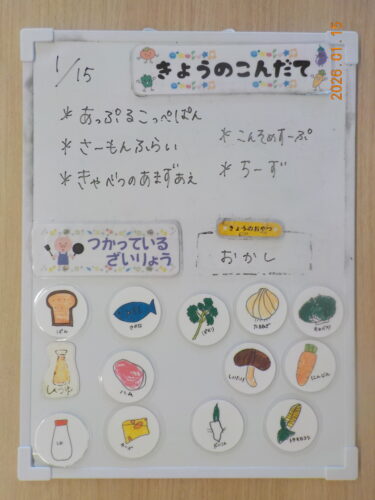 2026.01.15
きょうのこんだて
1/15
*あっぷるこっぺぱん
*さーもんふらい
*きゃべつのあまずあえ
*こんそめすーぷ
*ちーず
きょうのおやつ
おかし
つかっている
ざいりょう
ぱん
さかな
ぱせり
たまねぎ
きゃべつ
しょうゆ
はむ
しいたけ
にんじん
しお